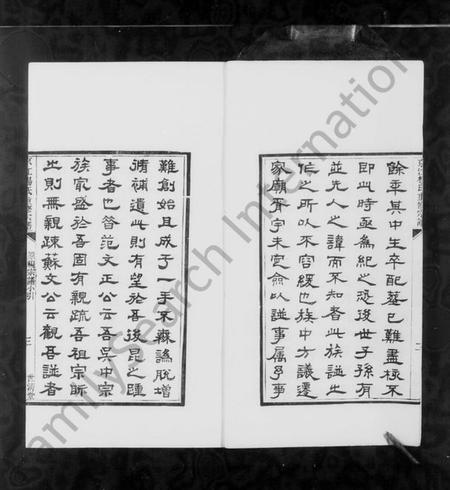 餘年其中生卒配墓已難盡稽不
即此時亟為紀之恐後世子孫有
並先人之諱而不知者此族譜之
作之所以不容緩也族中方議遷
家廟而宇未定僉以譜事屬予事
難創始且成于一手不無譌脫增
脩補遺此則有望於吾後昆之踵
事者也昔范文正公云吾吳中宗
族家盛於吾固有親疏吾祖宗眎
之則無親疎蘇文公云觀吾譜者
三
二
FamilySearch International